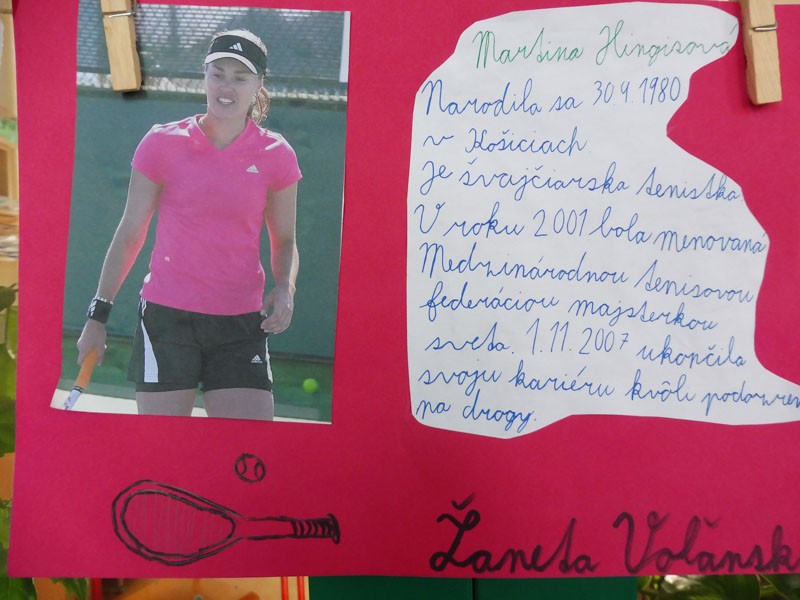 Martina Hingisová
Narodila sa 30.4.1980
v Košiciach
Je švajčiarska tenistka.
V roku 2001 bola menovaná
Medzinárodnou tenisovou
federáciou majsterkou
sveta. 1.11.2007 ukončila
svoju kariéru kvôli podozren
na drogy.
Žaneta Volănsk
adidas